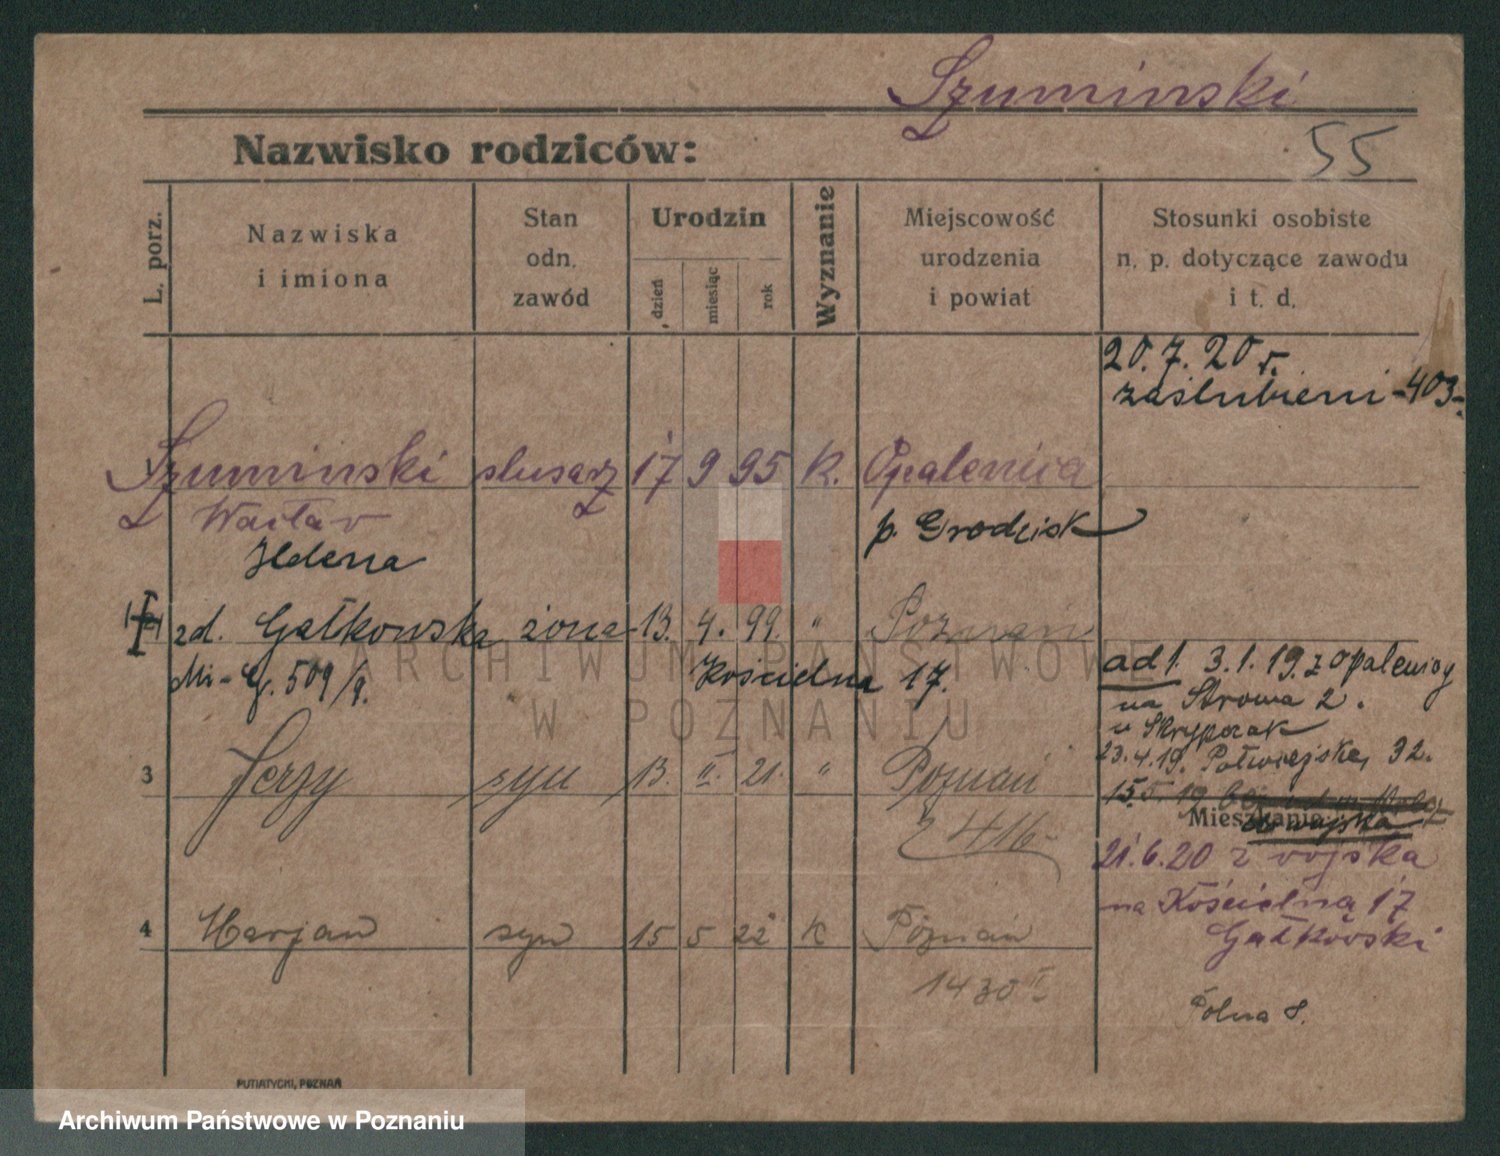 Szuminski
Nazwisko rodziców:
55
L. porz.
Nazwiska
i imiona
Stan
odn.
zawód
Urodzin
dzień
miesiąc
rok
Wyznanie
Miejscowość
urodzenia
i powiat
Stosunki osobiste
n. p. dotyczące zawodu
i t. d.
20.7.20 r.
zaślubieni - 403 -
1 Szuminski slusarz 17 9 95 K. Opalenica
Wacław
p. Grodzisk
Helena
zd. Gałkowska żona 13. 4. 99. " Poznań
509/9. Kościelna 17.
ad 1. 3.1.19. z Opalenicy
na Stroma 2.
u Skrypczak
23.4.19. Półwiejska 32.
3 Jerzy syn 13. II. 21. " Poznań
416
15.5.19
Mieszkanie
21.6.20 z vojska
na Kościelną 17
Gałkowski
4 Marjan syn 15 5 22 K Poznań
1430 II
Polna 8.
PUTIATYCKI, POZNAŃ
ARCHIWUM PAŃSTWOWE
W POZNANIU
Archiwum Państwowe w Poznaniu